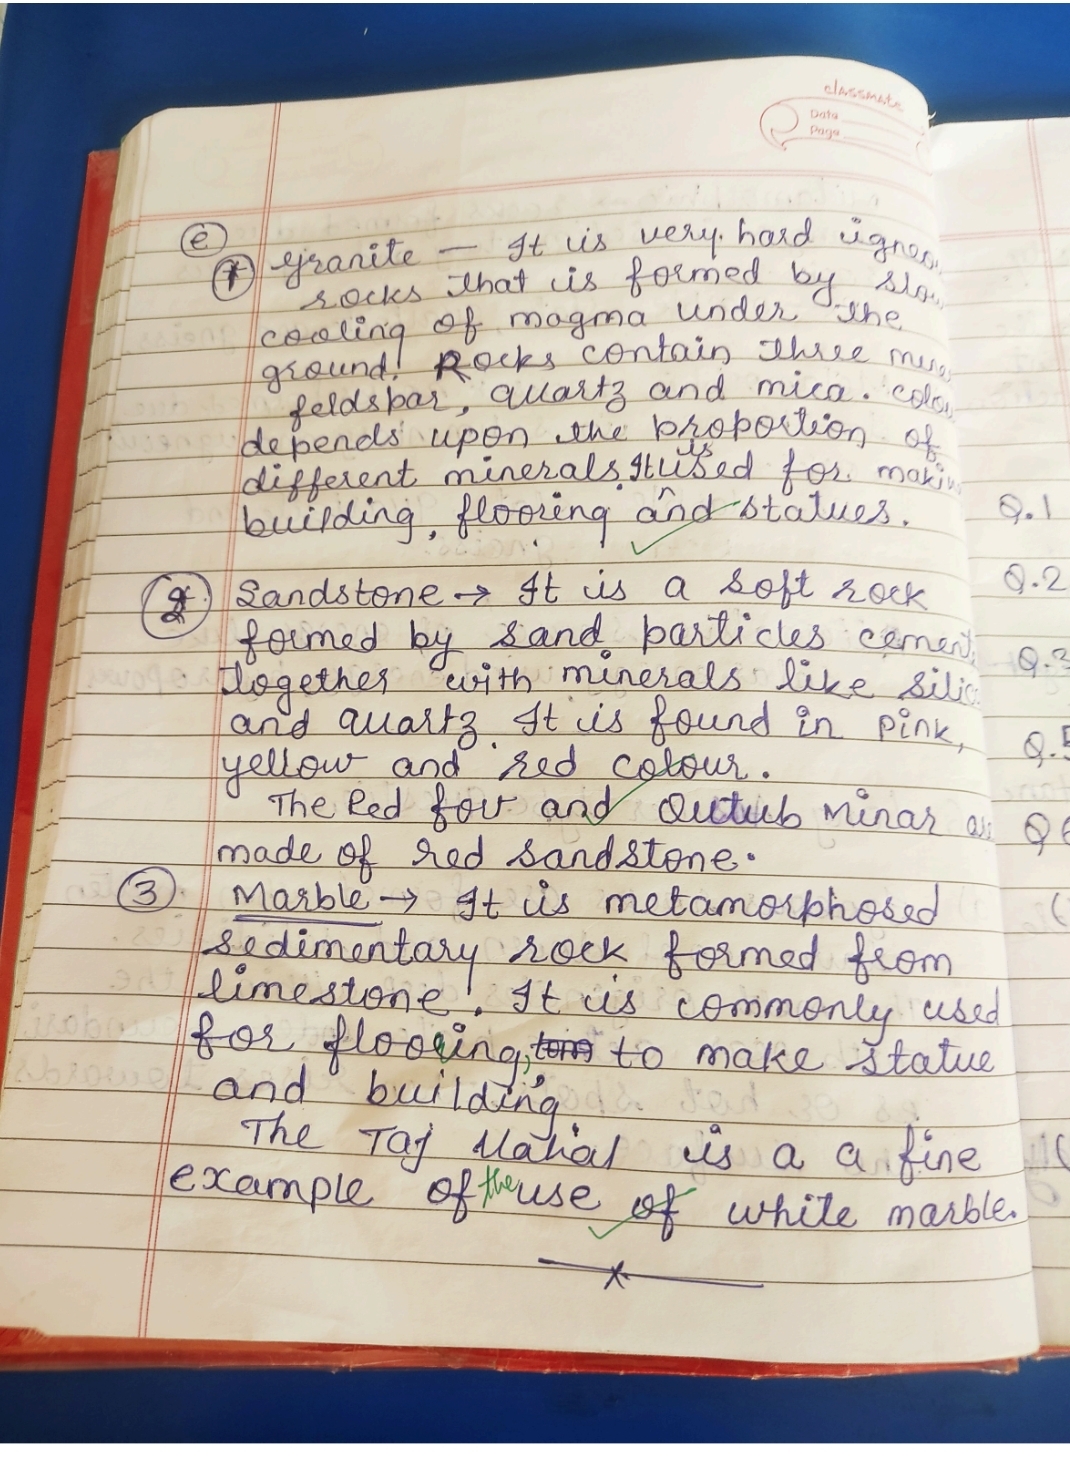 classmate
Date
Page
e
1 Granite — It is very hard igneo
rocks that is formed by slow
cooling of magma under the
ground. Rocks contain three
feldspar, quartz and mica. colou
depends upon the proportion of
different minerals. It is used for makin
building, flooring and statues.
2 Sandstone → It is a soft rock
formed by sand particles cement
together with minerals like silic
and quartz. It is found in pink,
yellow and red colour.
The Red and Qutub Minar
made of red sandstone.
3 Marble → It is metamorphosed
sedimentary rock formed from
limestone. It is commonly used
for flooring, to make statue
and building
The Taj Mahal is a a fine
example of the use of white marble.
Q.1
Q.2
Q.3
Q.5
Q6